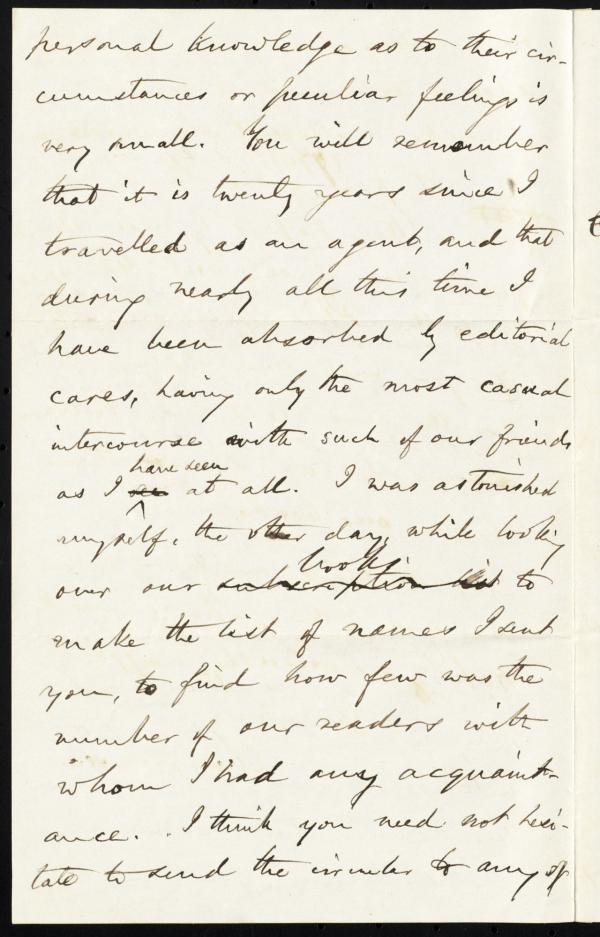 personal knowledge as to their cir-
cumstances or peculiar feelings is
very small. You will remember
that it is twenty years since I
travelled as an agent, and that
during nearly all this time I
have been absorbed by editorial
cares, having only the most casual
intercourse with such of our friends
have seen
as I see at all. I was astonished
myself, the other day, while looking
books
over our subscription list to
make the list of names I sent
you, to find how few was the
number of our readers with
whom I had any acquaint-
ance. I think you need not hesi-
tate to send the circular to any of